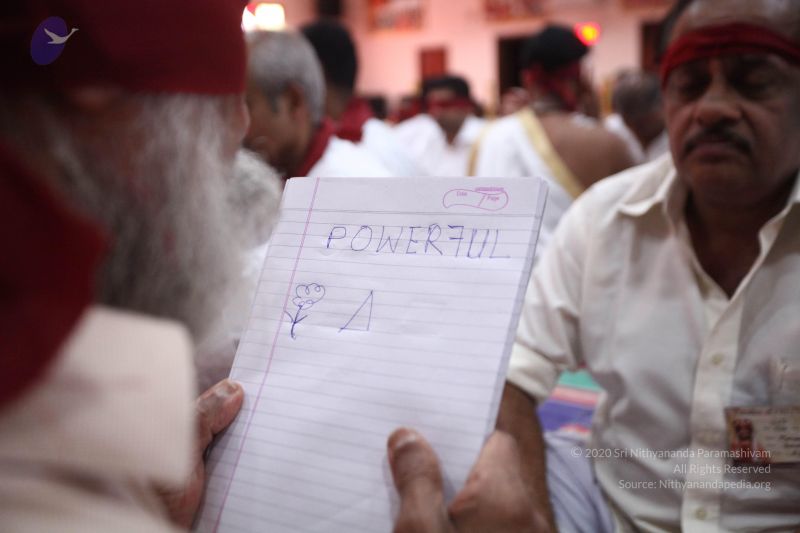 Date
Page
POWERFUL
© 2020 Sri Nithyananda Paramashivam
All Rights Reserved
Source: Nithyanandapedia.org